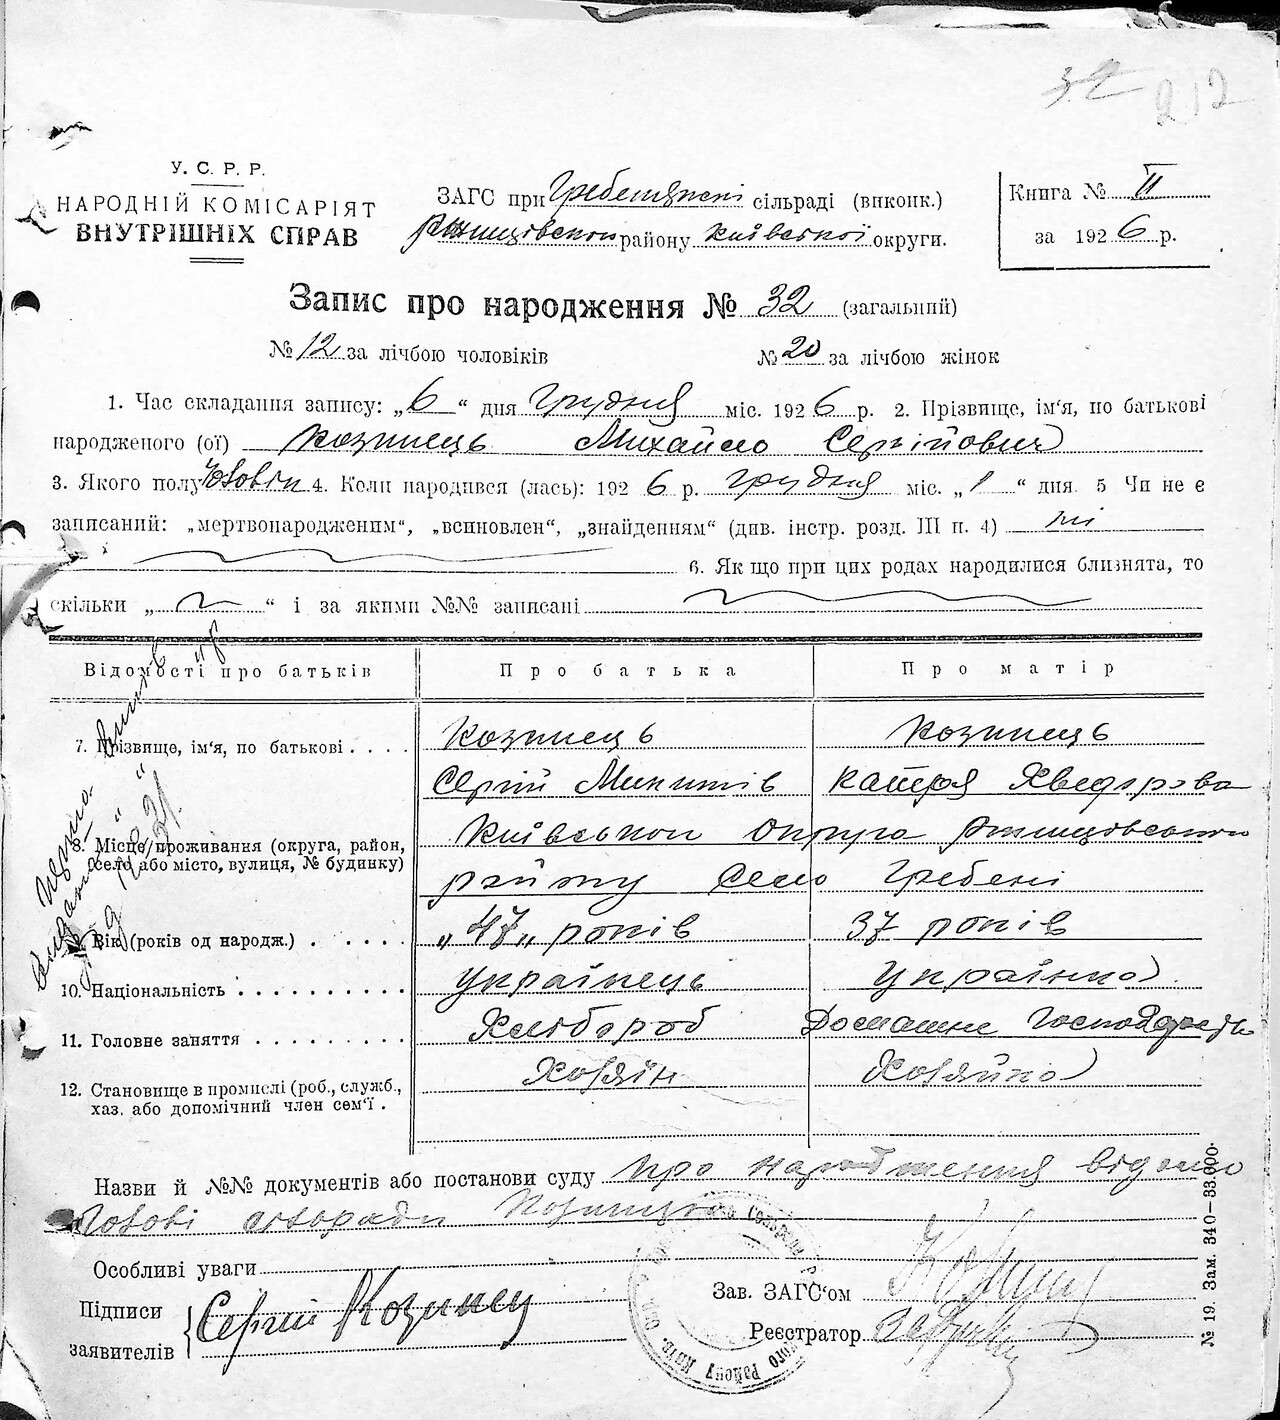 32 212
У. С. Р. Р.
НАРОДНІЙ КОМІСАРІЯТ
ВНУТРІШНІХ СПРАВ
ЗАГС при сільраді (виконк.)
району Київської округи.
Книга № II
за 1926 р.
Запис про народження № 32 (загальний)
№ 12 за лічбою чоловіків № 20 за лічбою жінок
1. Час складання запису: „6“ дня Грудня міс. 1926 р. 2. Прізвище, ім‘я, по батькові
народженого (ої) Козинець Михайло Сергійович
3. Якого полу 4. Коли народився (лась): 1926 р. Грудня міс. „1“ дня. 5 Чи не є
записаний: „мертвонародженим“, „всиновлен“, „знайденням“ (див. інстр. розд. III п. 4) ні
6. Як що при цих родах народилися близнята, то
скільки „ “ і за якими №№ записані
Відомості про батьків Про батька Про матір
7. Прізвище, ім‘я, по батькові . . . . Козинець Козинець
Сергій Микитів Катря Хведорова
8. Місце проживання (округа, район,
село або місто, вулиця, № будинку)
Київськои Округа
району Село Гребені
9. Вік (років од народж.) . . . . . „47„ років 37 років
10. Національність . . . . . . . . . . Українець Українка
11. Головне заняття . . . . . . . . . Хлібороб Домашнє
12. Становище в промислі (роб., служб.,
хаз. або допомічний член сем‘ї .
Хозяїн Хозяйка
Назви й №№ документів або постанови суду Про народження відомо
Голові сільради
Особливі уваги
Підписи
заявителів
Сергій Козинец
Зав. ЗАГС‘ом
Реєстратор
№ 19. Зам. 340—33.000.